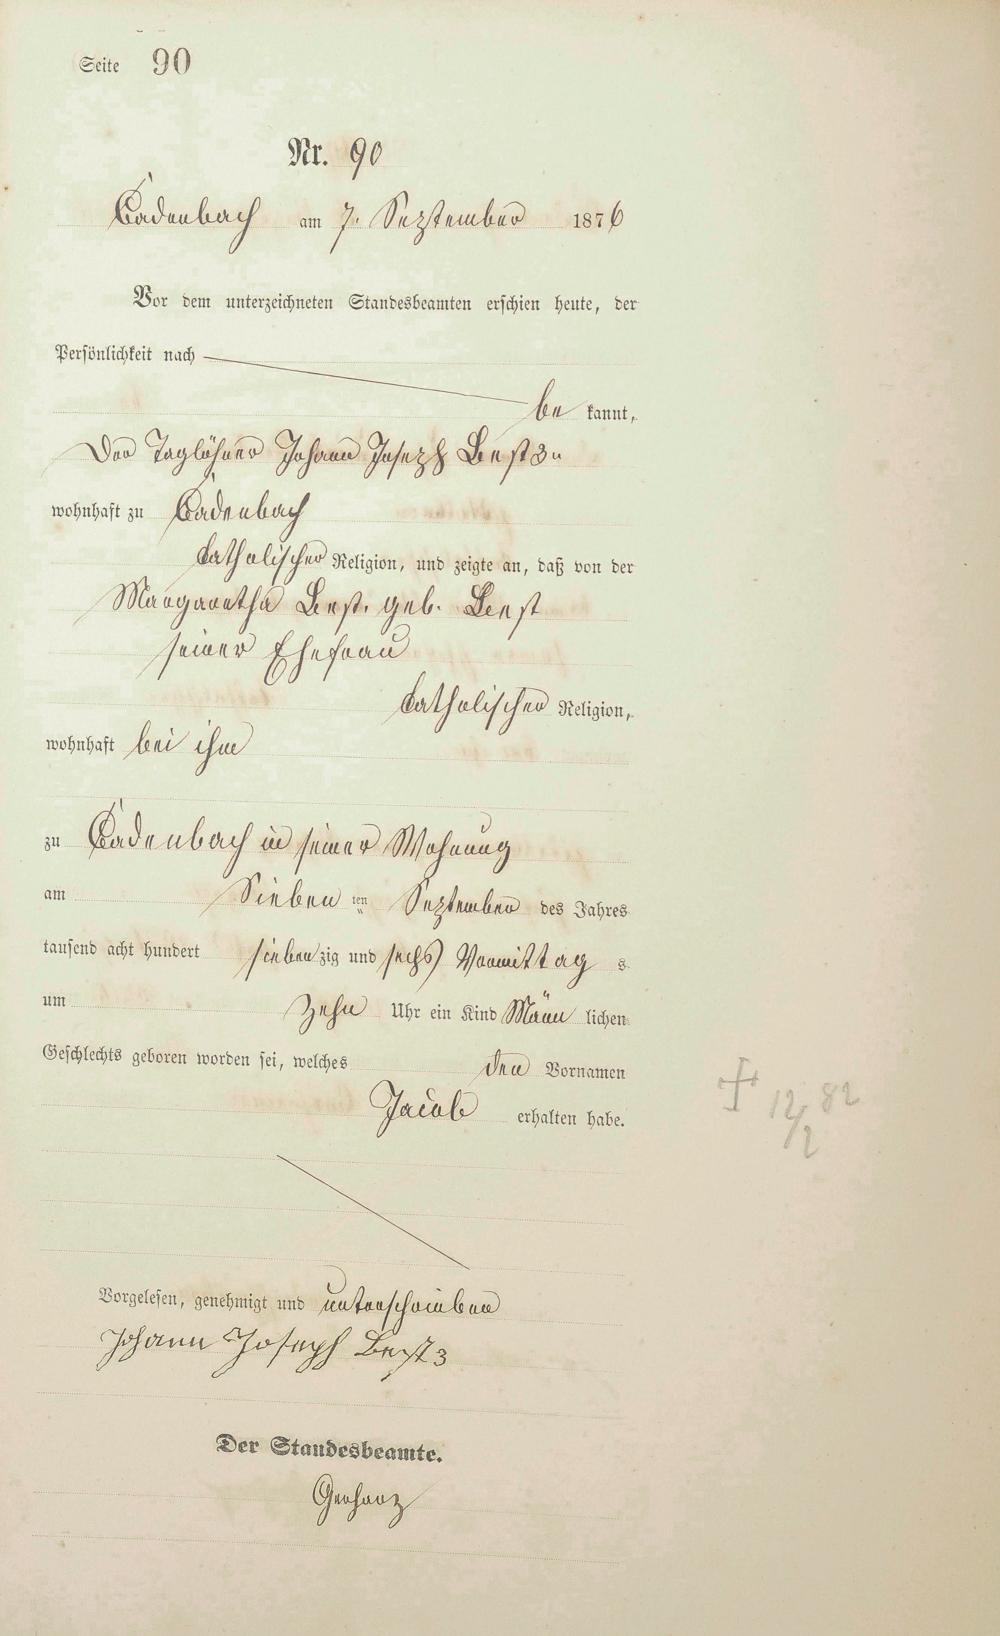 Seite 90
Nr. 90
Cadenbach am 7. September 1876
Vor dem unterzeichneten Standesbeamten erschien heute, der
Persönlichkeit nach
be kannt,
der Taglöhner Johann Joseph Best 3r
wohnhaft zu Cadenbach
katholischer Religion, und zeigte an, daß von der
Margaretha Best, geb. Best
seiner Ehefrau
katholischer Religion,
wohnhaft bei ihm
zu Cadenbach in seiner Wohnung
am Sieben ten September des Jahres
tausend acht hundert siebenzig und sechs Vormittag s
um zehn Uhr ein Kind Männ lichen
Geschlechts geboren worden sei, welches den Vornamen
Jacob erhalten habe.
† 12/2 82
Vorgelesen, genehmigt und unterschrieben
Johann Joseph Best 3
Der Standesbeamte.
Gerharz